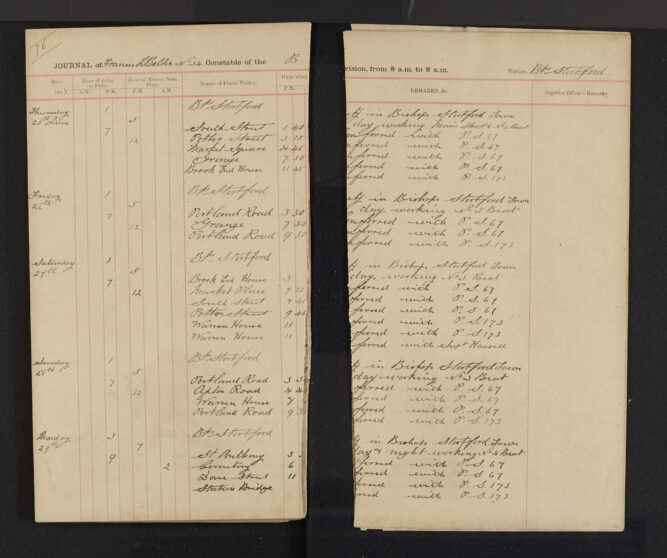 96
JOURNAL of Francis R No 14 Constable of the B
Date Hour of going on Duty. Hour of Return from Duty Names of Places Visited. Hour when
191 A.M. P.M. P.M. A.M. P.M.
Thursday 1 Bp. Stortford
25th June 5
7 South Street 1 40
12 Potter Street 3 15
Market Square 4 45
Grange 7 30
Brook End House 11 45
Friday 1 Bp. Stortford
26th 5
7 Portland Road 3 30
12 Grange 7 30
Portland Road 9 30
Saturday 1 Bp. Stortford
27th 5
7 Brook End House 3
12 Market Place 7 30
South Street
Potter Street 9 45
Warren House 11
Warren House 11
Sunday 1 Bp. Stortford
28th 5
7 Portland Road 3 3
12 Apton Road 4 4
Warren House 8
Portland Road 9 3
Monday 3 Bp. Stortford
29th 7
9 St Anthony 3
2 Cemetery 6
Dane Street 11
Station Bridge
vision, from 8 a.m. to 8 a.m. Station Bp. Stortford
REMARKS, &c. Superior Officer's Remarks.
ty in Bishop Stortford Town
day working Main Street & No 3 Beat
onferred with P.S. 67
ferred with P.S. 67
ferred with P.S. 67
ferred with P.S. 67
ferred with P.S. 173
ty in Bishops Stortford Town
day working No 3 Beat
onferred with P.S. 67
nferred with P.S. 67
nferred with P.S. 173
ty in Bishop Stortford Town
day working No 3 Beat
ferred with P.S. 67
ferred with P.S. 67
ferred with P.S. 67
ferred with P.S. 173
ferred with P.S. 173
ferred with Supt
ty in Bishop Stortford Town
day working No 3 Beat
ferred with P.S. 67
ferred with P.S. 67
ferred with P.S. 67
ferred with P.S. 173
ty in Bishop Stortford Town
day & night working No 4 Beat
ferred with P.S. 67
ferred with P.S. 67
ferred with P.S. 173
ferred with P.S. 173